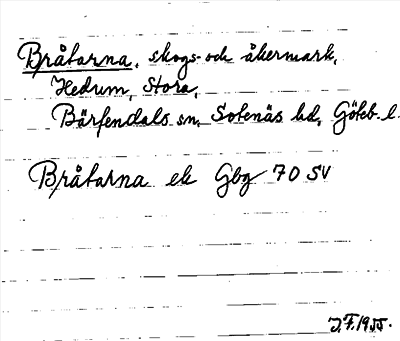 Bråtarna, skogs- och åkermark,
Hedum, Stora,
Bärfendals sn, Sotenäs hd, Göteb. l.
Bråtarna ek Gbg 70 SV
J.F. 1955.